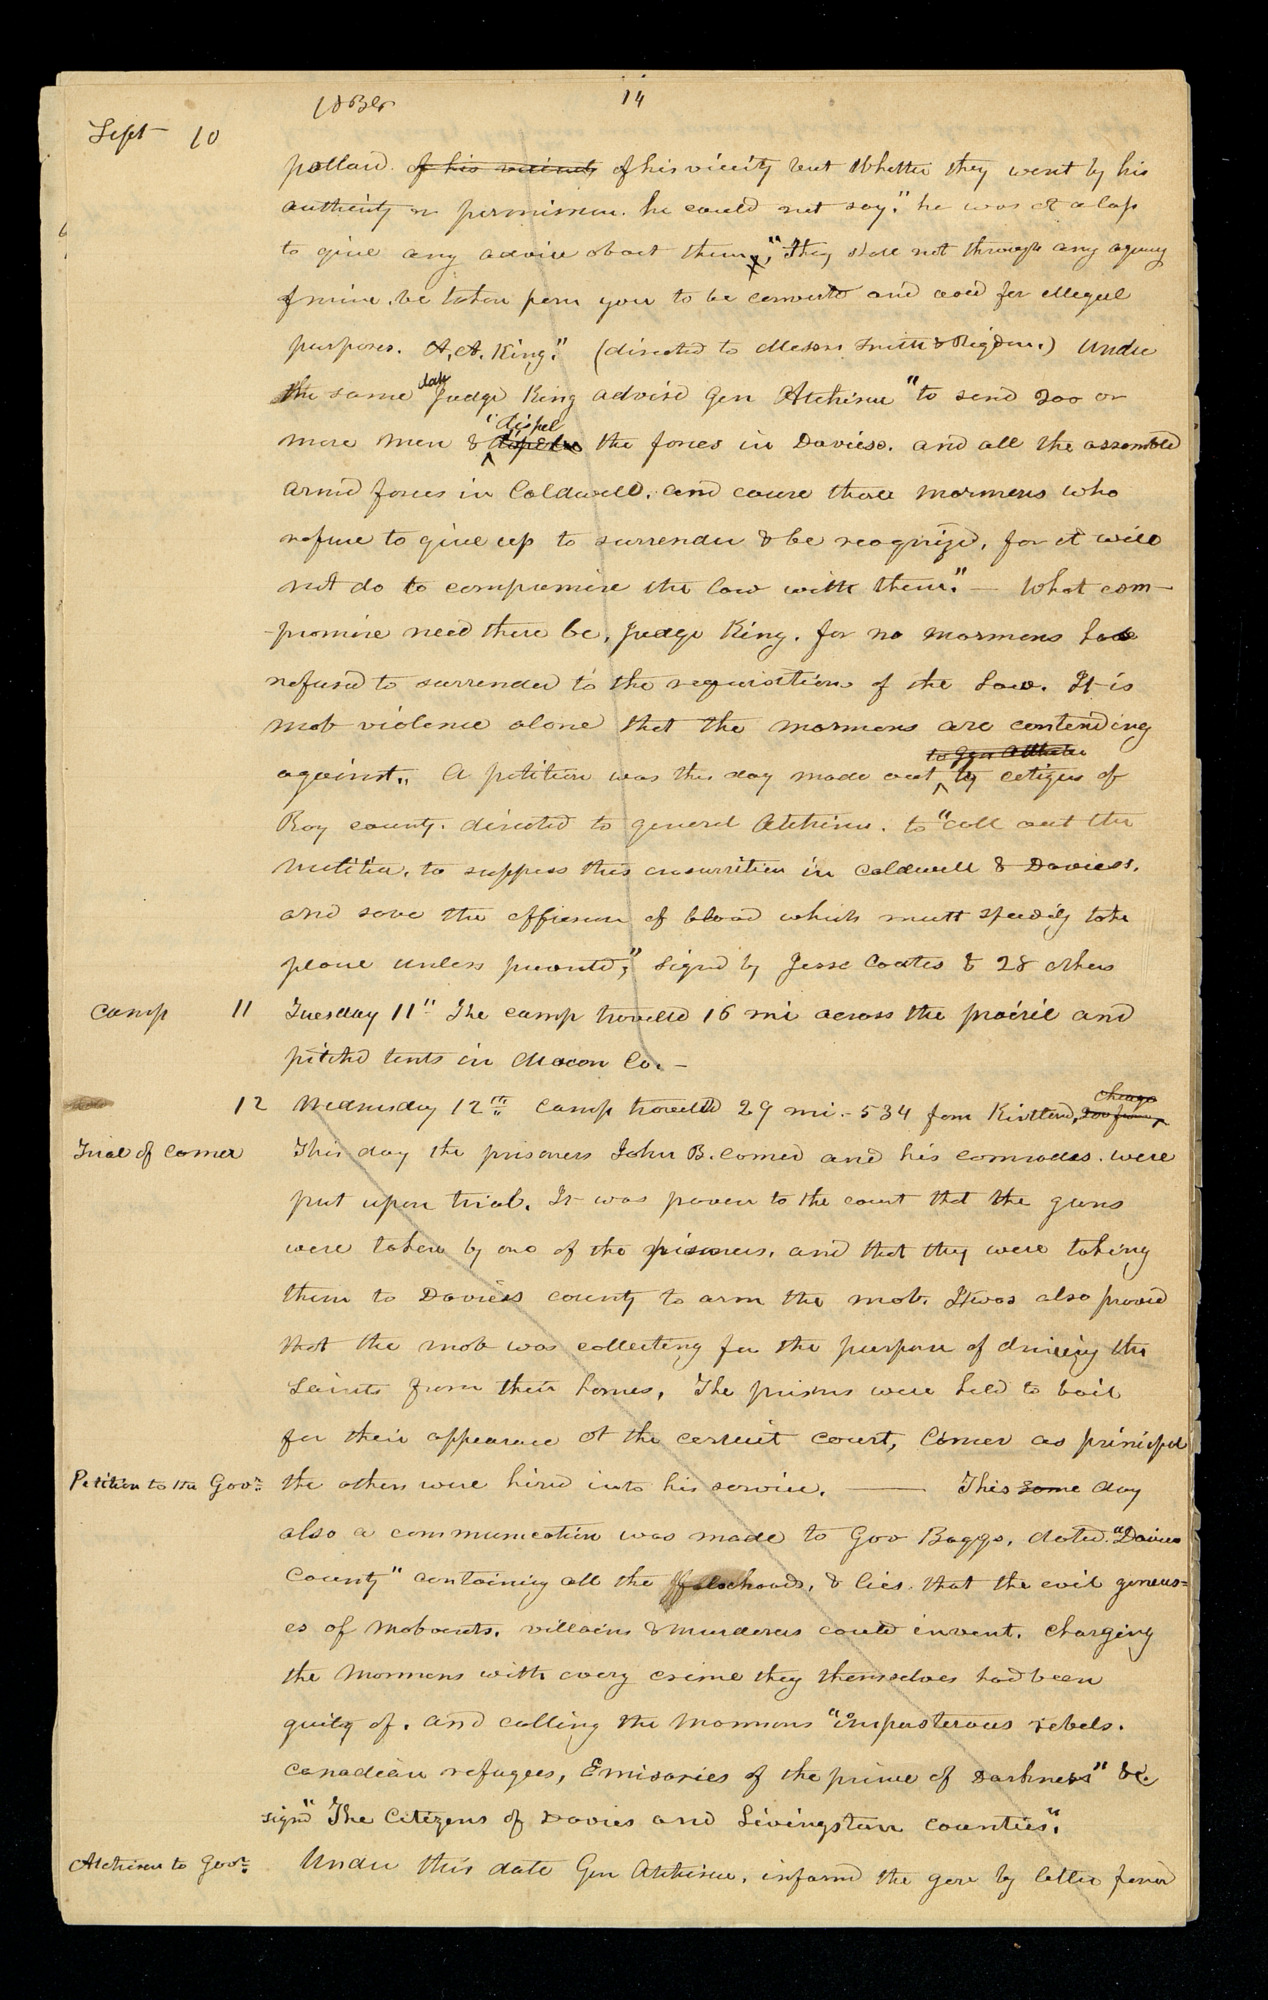 1838
14
Sept 10
pollard. of his vicinity of his vicinity but whether they went by his
authority or permission. he could not say." he was at a loss
to give any advice about them, "They shall not through any agency
of mine, be taken from you to be converted and used for illegal
purposes. A. A. King." (directed to Messrs Smith & Rigdon.) Under
the same date Judge King advised Gen Atchison "to send 200 or
more men & "dispel the forces in Daviess. and all the assembled
armed forces in Caldwell. and cause those mormons who
refuse to give up to surrender & be recognized, for it will
not do to compromise the law with them." — What com-
-promise need there be, Judge King. for no mormons have
refused to surrender to the requisitions of the Law. It is
mob violence alone that the mormons are contending
to Gen Atchison
against.. A petition was this day made out by citizens of
Ray county. directed to general Atchison. to "call out the
militia, to suppress this insurrection in Caldwell & Daviess.
and save the effusion of blood which must speedily take
place unless prevented," signed by Jesse Coates & 28 others
Camp 11 Tuesday 11" The camp travelled 16 mi across the prairie and
pitched tents in Macon Co. –
12 Wednesday 12th Camp travelled 29 mi. – 534 from Kirtland,
Trial of Comer This day the prisoners John B. Comer and his comrades. were
put upon trial. It was proven to the court that the guns
were taken by one of the prisoners. and that they were taking
them to Daviess county to arm the mob. It was also proved
that the mob was collecting for the purpose of driving the
Saints from their homes, The prisoners were held to bail
for their appearance at the circuit court, Comer as principal
Petition to the Govr. the others were hired into his service. —— This same day
also a communication was made to Gov Boggs, dated. "Daviess
County" containing all the falsehoods, & lies. that the evil genius-
es of mobocrats. villains & murderers could invent. Charging
the Mormons with every crime they themselves had been
guilty of. and calling the Mormons "imposterous rebels.
Canadian refugees, Emisaries of the prince of Darkness" &c.
signd "The Citizens of Davies and Livingston counties".
Atchison to Govr. Under this date Gen Atchison, informd the gove by letter from